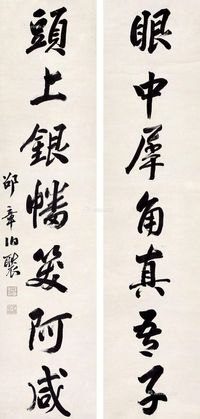 眼中犀角真吾子
頭上銀幡笑阿咸
邵章伯褧